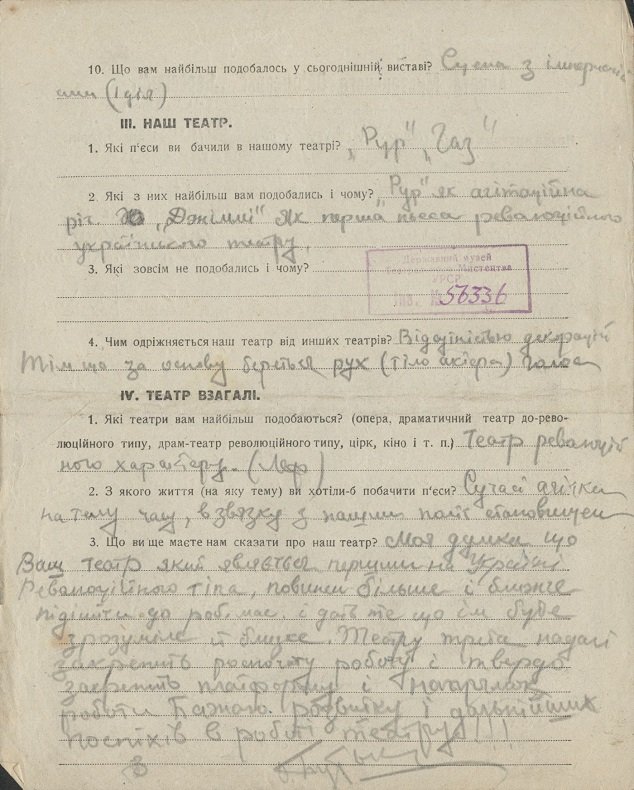 10. Що вам найбільш подобалось у сьогоднішній виставі? Сцена з імперіаліс
тами (I дія)
III. НАШ ТЕАТР.
1. Які п'єси ви бачили в нашому театрі? „Рур" „Газ"
2. Які з них найбільш вам подобались і чому? „Рур" як агітаційна
річ „Джіммі" Як перша пьеса революційного
українського театру.
3. Які зовсім не подобались і чому?
Державний музей
Театрального Мистецтва
УРСР
Інв. № 56336
4. Чим одріжняється наш театр від инших театрів? Відсутністью декорацій
Тім що за основу береться рух (тіло актера) голос
IV. ТЕАТР ВЗАГАЛІ.
1. Які театри вам найбільш подобаються? (опера, драматичний театр до-рево-
люційного типу, драм-театр революційного типу, цірк, кіно і т. п.) Театр революцій
ного характеру. (Леф)
2. З якого життя (на яку тему) ви хотіли-б побачити п'єси? Сучасі агітки
на тему часу, в звязку з нашим політ становищем
3. Що ви ще маєте нам сказати про наш театр? Моя думка що
Ваш театр який являється першим на Україні
Революційного тіпа, повинен більше і ближче
підійти до роб. мас. і дать те що їм буде
зрозуміле й близке. Театру треба надалі
закрепить роспочату роботу і твердо
закрепить платформу і
роботи Бажаю розвитку і дальнійших
поспіхів в роботі театру!!!